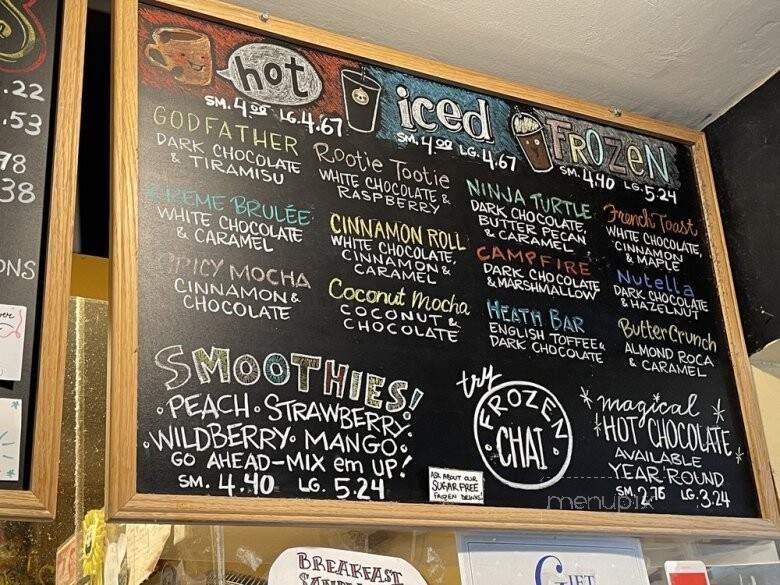 .22
.53
78
38
ONS
hot
SM. 4.00 LG. 4.67
iced
SM. 4.00 LG. 4.67
FROZEN
SM. 4.40 LG. 5.24
GODFATHER
DARK CHOCOLATE
& TIRAMISU
CREME BRULÉE
WHITE CHOCOLATE
& CARAMEL
SPICY MOCHA
CINNAMON &
CHOCOLATE
Rootie Tootie
WHITE CHOCOLATE &
RASPBERRY
CINNAMON ROLL
WHITE CHOCOLATE,
CINNAMON &
CARAMEL
Coconut Mocha
COCONUT &
CHOCOLATE
NINJA TURTLE
DARK CHOCOLATE,
BUTTER PECAN
& CARAMEL
CAMPFIRE
DARK CHOCOLATE
& MARSHMALLOW
HEATH BAR
ENGLISH TOFFEE &
DARK CHOCOLATE
French Toast
WHITE CHOCOLATE,
CINNAMON
& MAPLE
Nutella
DARK CHOCOLATE
& HAZELNUT
Butter Crunch
ALMOND ROCA
& CARAMEL
SMOOTHIES!
• PEACH • STRAWBERRY •
• WILDBERRY • MANGO •
GO AHEAD-MIX em UP!
SM. 4.40 LG. 5.24
try
FROZEN
• CHAI •
ASK ABOUT OUR
SUGAR FREE
FROZEN DRINKS!
magical
HOT CHOCOLATE
AVAILABLE
YEAR ROUND
SM. 2.76 LG. 3.24
menupix
BREAKFAST
GIFT